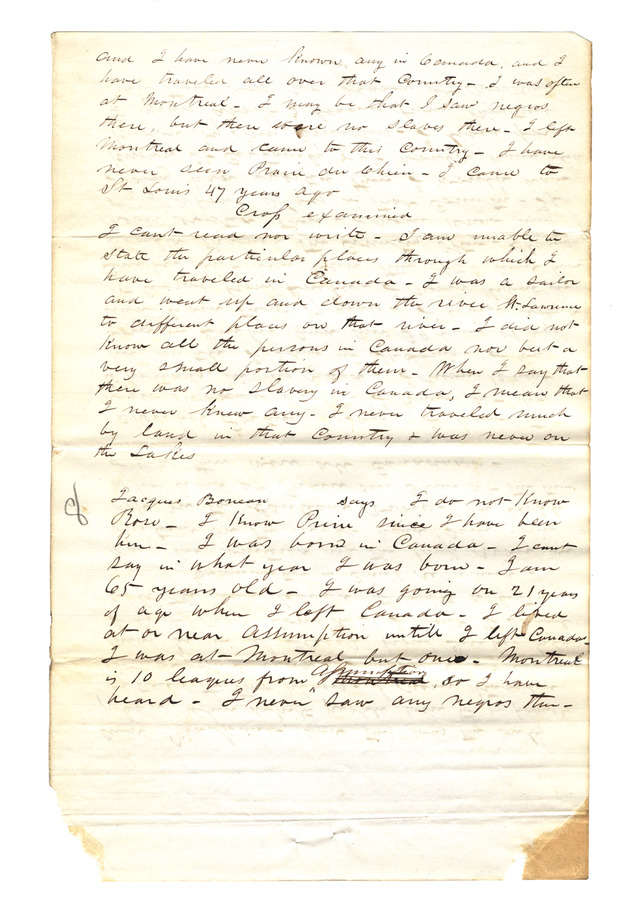 and I have never known any in Canada, and I
have traveled all over that Country - I was often
at Montreal - I may be that I saw negros
there, but there were no slaves there - I left
Montreal and came to this Country - I have
never seen Prairi du Chien - I came to
St Louis 47 years ago
Cross examined
I cant read nor write - I am unable to
state the particular places through which I
have traveled in Canada - I was a sailor
and went up and down the river St. Lawrence
to different places on that river - I did not
know all the persons in Canada nor but a
very small portion of them - When I say that
there was no slavery in Canada, I mean that
I never knew any - I never traveled much
by land in that Country & was never on
the Lakes
8
Jacques Boneau says I do not know
Rose - I know Prine since I have been
here - I was born in Canada - I cant
say in what year I was born - I am
65 years old - I was going on 21 years
of age when I left Canada - I lived
at or near Assumption untill I left Canada -
I was at Montreal but once - Montreal
is 10 leagues from Assumption Montreal, so I have
heard - I never saw any negros there -